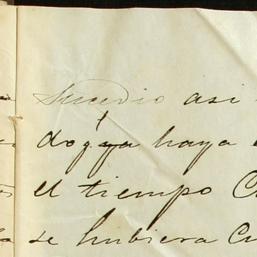 Sucedio asi
do y ya haya
el tiempo
se hubiera